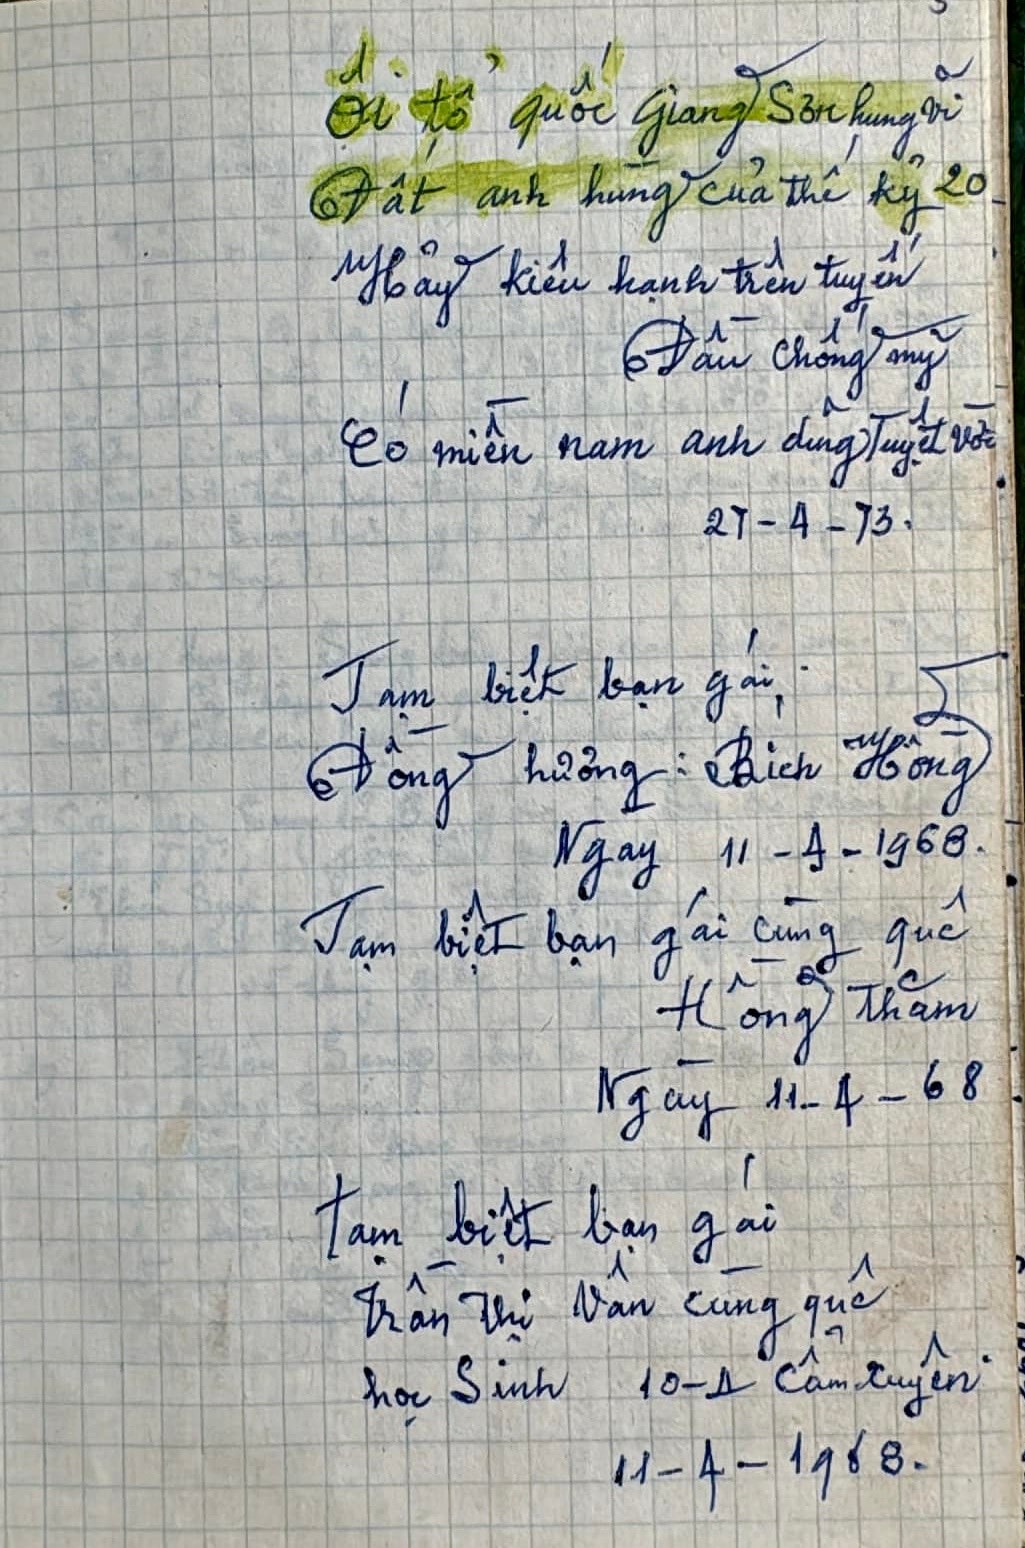 Ôi tổ quốc Giang Sơn hùng vĩ
Đất anh hùng của thế kỷ 20
Hãy kiêu hạnh trên tuyến
Đầu chống mỹ
Có miền nam anh dũng Tuyệt vời
27-4-73.
Tạm biệt bạn gái,
Đồng hương: Bích Hồng
Ngày 11-4-1968.
Tạm biệt bạn gái cùng quê
Hồng Thắm
Ngày 11-4-68
Tạm biệt bạn gái
Trần Thị Vân cùng quê
học Sinh 10-A Cẩm xuyên
11-4-1968.